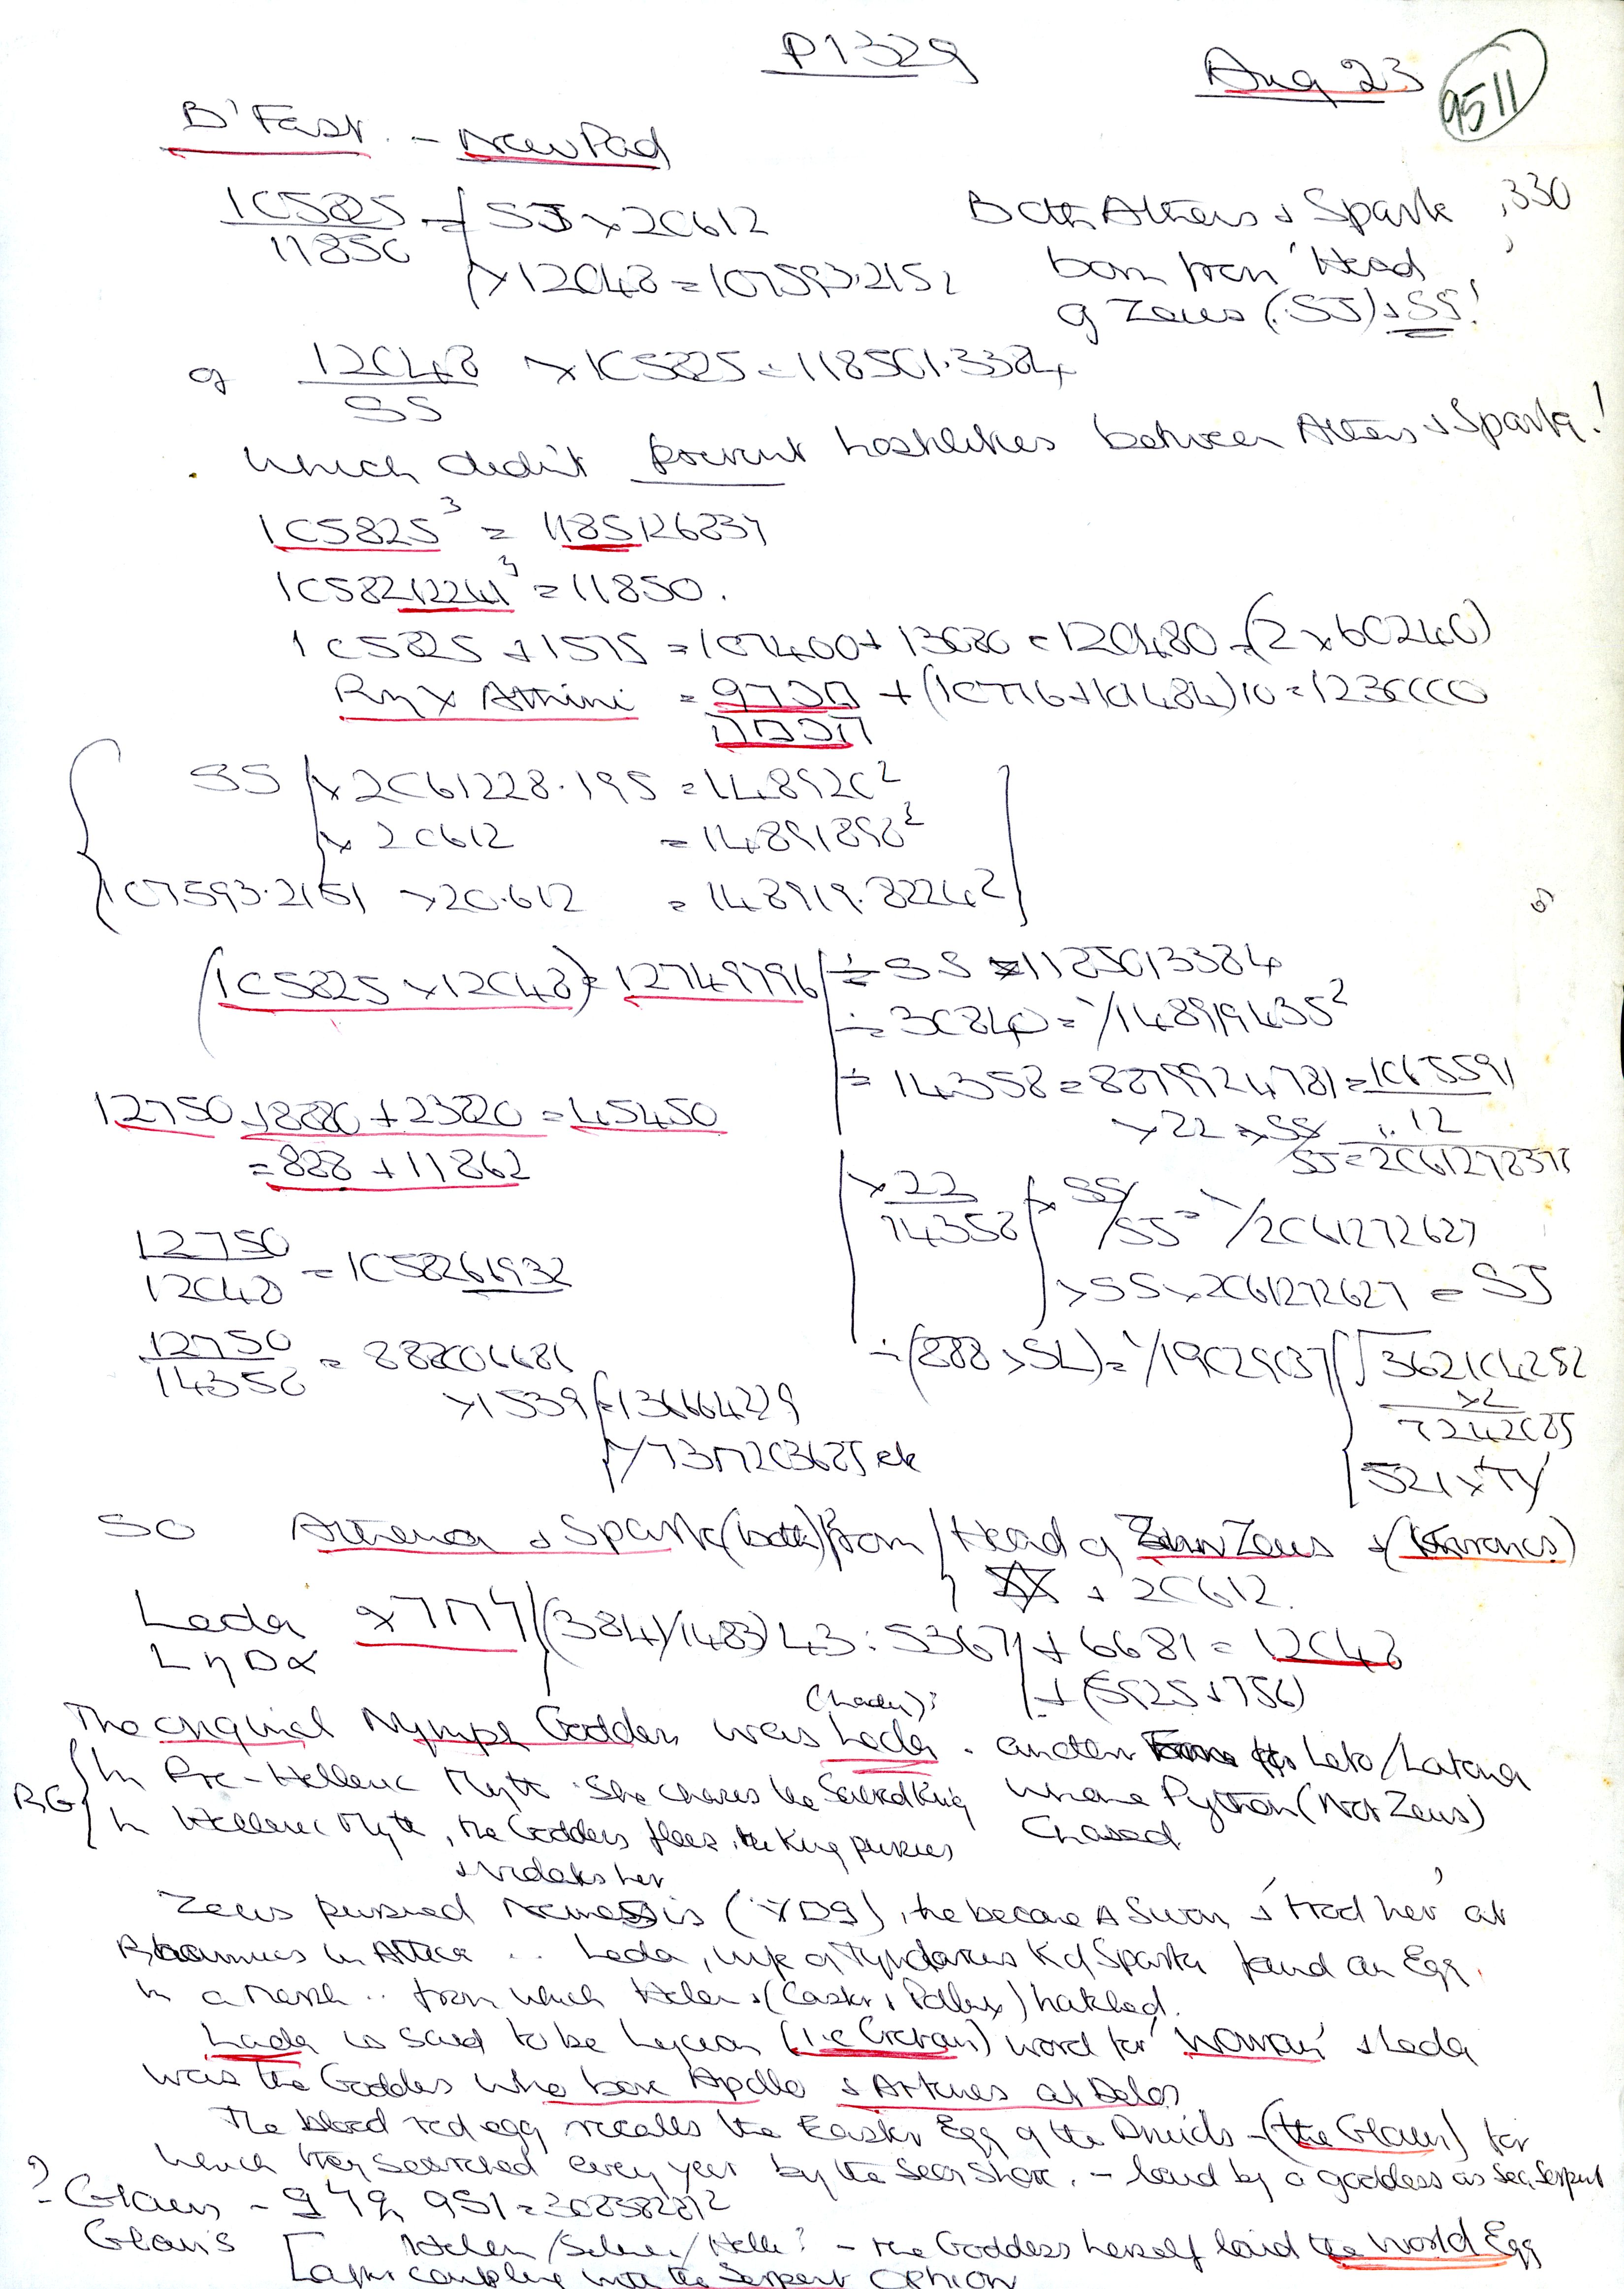 P1329
Aug 23
9511
B'Fast. - New Pad
105825 / 11850 = SJ × 20612
× 12048 = 107593.2152
Both Athens & Sparta ,330
born from 'Head
of Zeus (SJ) & SS!
or 12048 / SS × 105825 = 118501.3384
which didn't prevent hostilities between Athens & Sparta!
105825³ = 1185126837
1058212241³ = 11850.
105825 + 1575 = 107400 + 13080 = 120480 = (2 × 60240)
= 973 + (10716 + 101484) 10 = 1230000
SS × 2061228.195 = 148920²
× 20612 = 14891898²
107593.2151 × 20.612 = 148919.8224²
(105825 × 12048) = 12749796 ÷ SS = 1185013384
÷ 30840 = 1/148919435²
÷ 14358 = 8879924781 = 1065591
× 22 × SS .. 12
SJ = 2061278378
12750 + 8880 + 23820 = 45450
= 888 + 11862
× 22 / 14358 × SS/SJ = 1/2061272627
× SS × 2061272627 = SJ
12750 / 12048 = 1058266932
12750 / 14358 = 888006686
÷ (888 × SL) = 1/19029037 √362104282
× 2
7242085
521 × TY
× 1539 = 136664229
1/7317203685 etc
So Athena & Sparta (both) from Head of Zeus & (Kronos)
& 20612.
Leda (384)/(1483) 43 : 5367 + 6681 = 12048
LηDα + (5925 + 756)
(Lady)?
The original Nymph Goddess was Leda. another Form for Leto/Latona
RG In Pre-Hellenic Myth She chases the Sacred King whom Python (Not Zeus)
In Hellenic Myth, the Goddess flees, the King pursues chased
& violates her
Zeus pursued Nemesis, he became A Swan & 'trod her' at
Rhamnus in Attica .. Leda, wife of Tyndareus K of Sparta found an Egg
in a Marsh .. from which Helen & (Castor & Pollux) hatched.
Lada is said to be Lycian (i.e Cretan) word for 'Woman' & Leda
was the Goddess who bore Apollo & Artemis at Delos
The blood red egg recalls the Easter Egg of the Druids - (the Glain) for
which they searched every year by the Sea Shore. - laid by a goddess as Sea Serpent
? Glain - 951 = 308382812
Glain's Helen/Selene/Helle? - the Goddess herself laid the World Egg
[after coupling with the Serpent Ophion